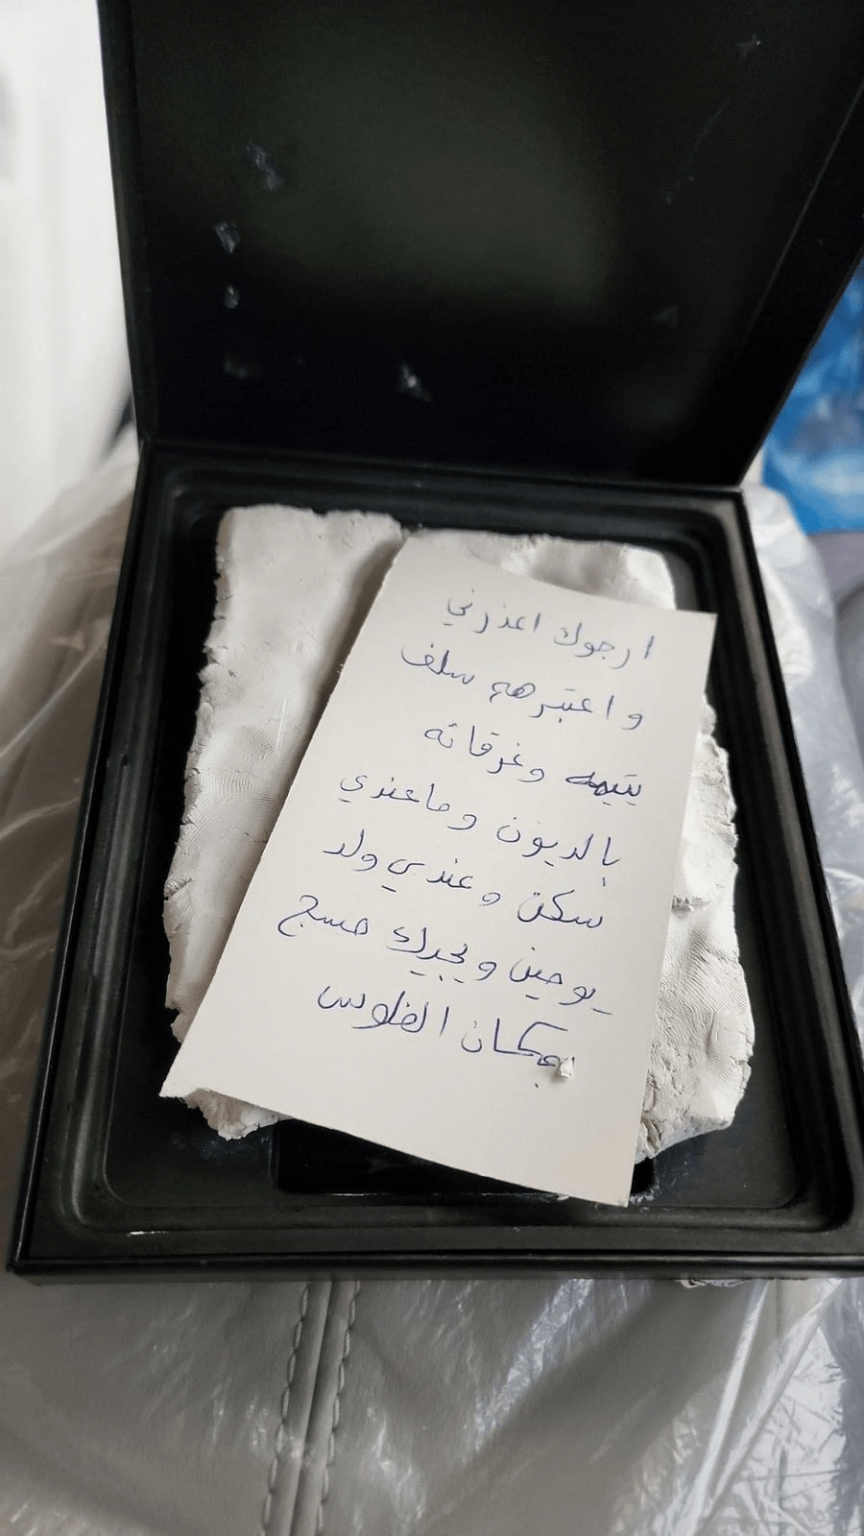 ارجوك اعذرني
و اعتبرهم سلف
يتيمه وغرقانه
بالديون وماعندي
سكن وعندي ولد
يومين ويجيك مسج
بمكان الفلوس